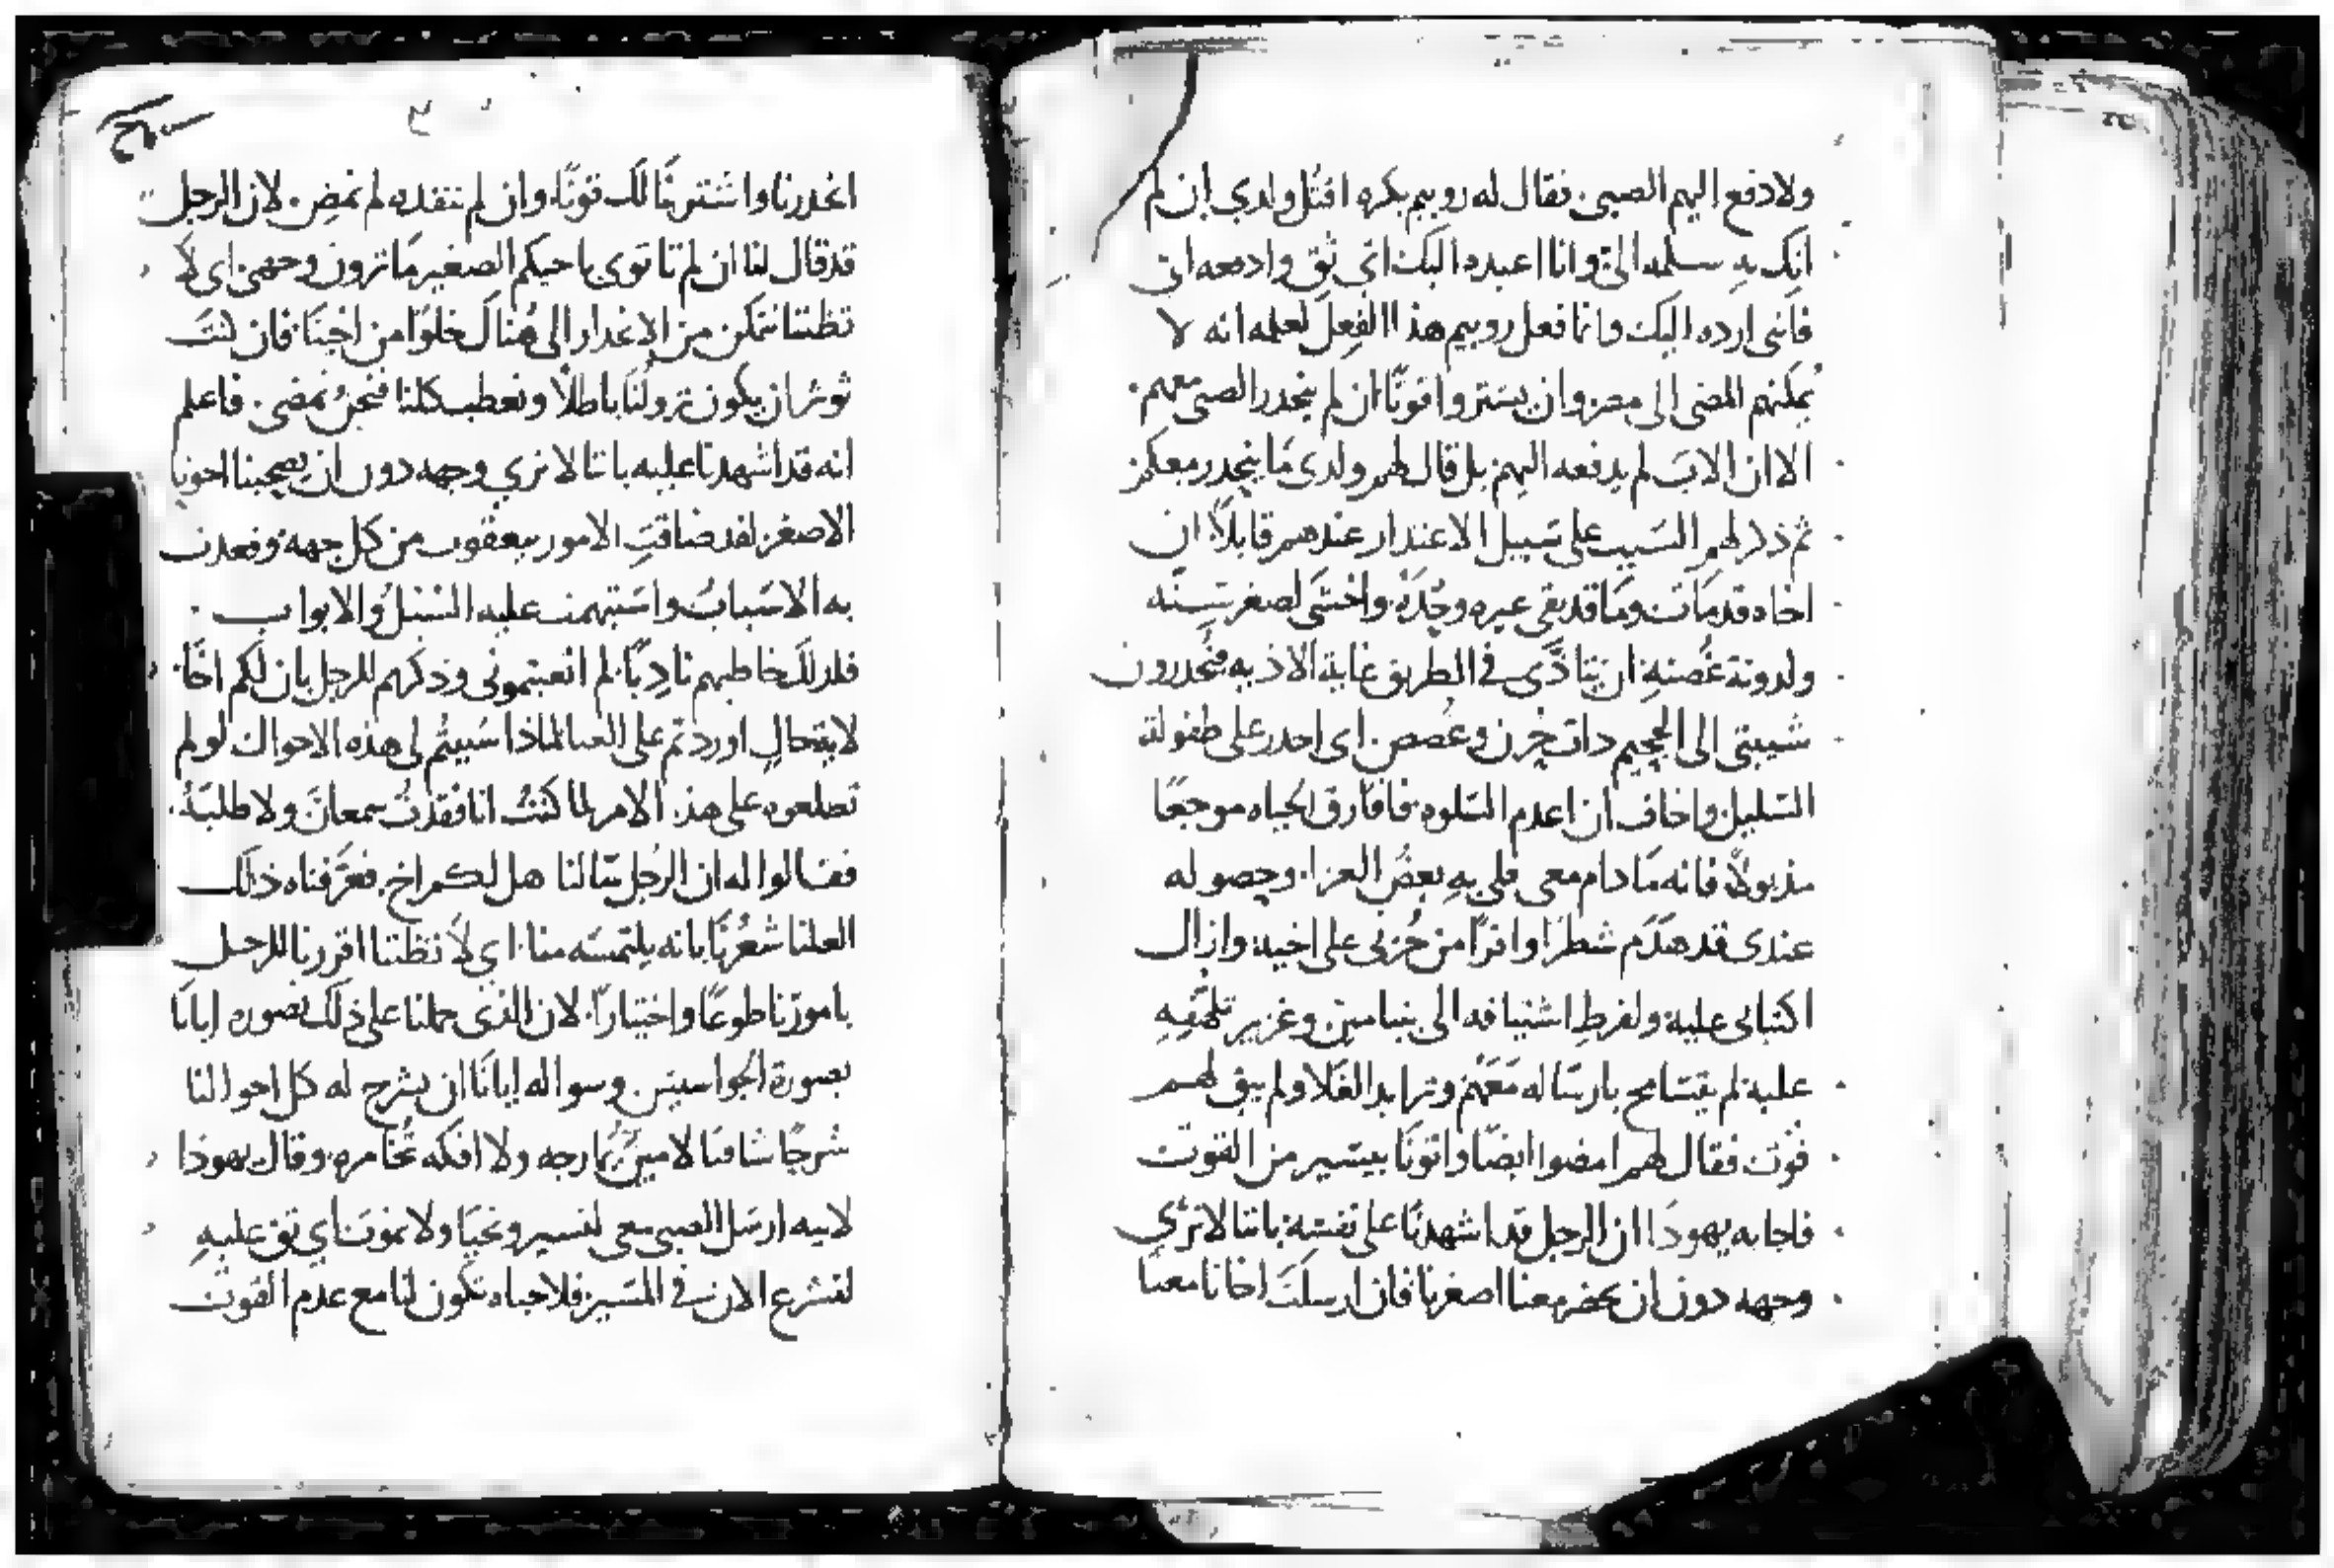 ولا دفع اليهم الصبى. فقال له روبيم بكره اقتُل ولدي ان لم
اتِك به سلمه الىّ وانا اعيده اليك اى ثق وادفعه الى
فانى ارده اليك وانما فعل روبيم هذا الفعل لعلمه انه لا
يُمكنهم المضى الى مصر وان يشتروا قوتًا ان لم ينحدر الصبى معهم.
الا ان الابَ لم يدفعه اليهم بل قال لهم ولدى مَا ينحدر معكم
ثم ذكر لهم السَبب على سَبيل الاعتذار عندهم قايلاً ان
اخاه قد مَات ومَا قد بقى غيره وحْدَهُ. واخشَى لصغر سِنه
ولدونة غُصنهِ ان يتاذَّى فى الطريق غاية الاذيه فتُحدرون
شيبتى الى الجحيم ذات حُزن وغُصص. اى احدر على طفولة
السَليل واخاف ان اعدم السَلوه فافارق الحياه موجعًا
مذبولاً فانه مَا دام معى فلى بهِ بعضُ العزا. وحصوله
عندى قد هَدَم شطرًا وافرًا من حُزنى على اخيه وازال
اكتيابى عليه ولفرطِ اشتياقه الى بنيامين وغزير تلهّفِهِ
عليه لم يتسَامح بارسَاله مَعَهُم وتزايد الغَلا ولم يبق لهم
قوت فقال لهم امضوا ايضًا واتونَا بيسَير من القوت
فاجابه يهودَا ان الرجل قد اشهدنَا على نفسَه باننا لا نرى
وجهه دون ان يحضر معنا اصغرنا فان ارسلتَ اخانا معنا
انحدرنا واشترينَا لكَ قوتًا. وان لم تنفذه لم نمضِ. لان الرجل
قد قال لنا ان لم تاتوى باخيكم الصغير مَا ترون وجهى اى لا
تظننا نتمكن من الانحدار الى هُناكَ خلوًا من اخينَا فان كنتَ
توثر ان يكون نزولُنَا باطلاً ونعطب كلنا فنحنُ نمضى. فاعلم
انه قد اشهدنا عليه باننا لا نري وجهه دون ان يصحبنا اخونا
الاصغر لقد ضاقتِ الامور بيعقوب من كل جهه وقعدت
به الاسَبابُ واسَتبهمت عليه السُبُلُ والابواب
فلذلكَ خاطبهم تاديبًا. لم اتعبتمونى وذكرتم للرجل بان لكم اخًا.
لاية حالٍ اوردتم على العنا لماذا سَببتُم لى هذه الاحوال لو لم
تطلعوه على هذا الامر لما كنتُ انا فقدتُ سمعانَ ولا طلبَهُ.
فقالوا له ان الرجُل سَالنا هل لكم اخ. فعَرَّفناه ذلك
العلنا شعُرنَا بانه يلتمسَه منا. اى لا تظننا اقررنا للرجل
بامورنَا طوعًا واختيارًا. لان الذى حملنا على ذلكَ تصوره ايانَا
بصورة الجواسيس وسواله ايانَا ان يشرح له كل احوالنا
شرحًا شافيَا لا مينٌ يُمارجه ولا افكه تُخامره. وقال يهوذا
لابيه ارسَل الصبى معى لنسير ونحيَا ولا نموت اي ثق عليهِ
لنشرع الان فى المسَير فلا حياه تكون لنا مع عدم القوت